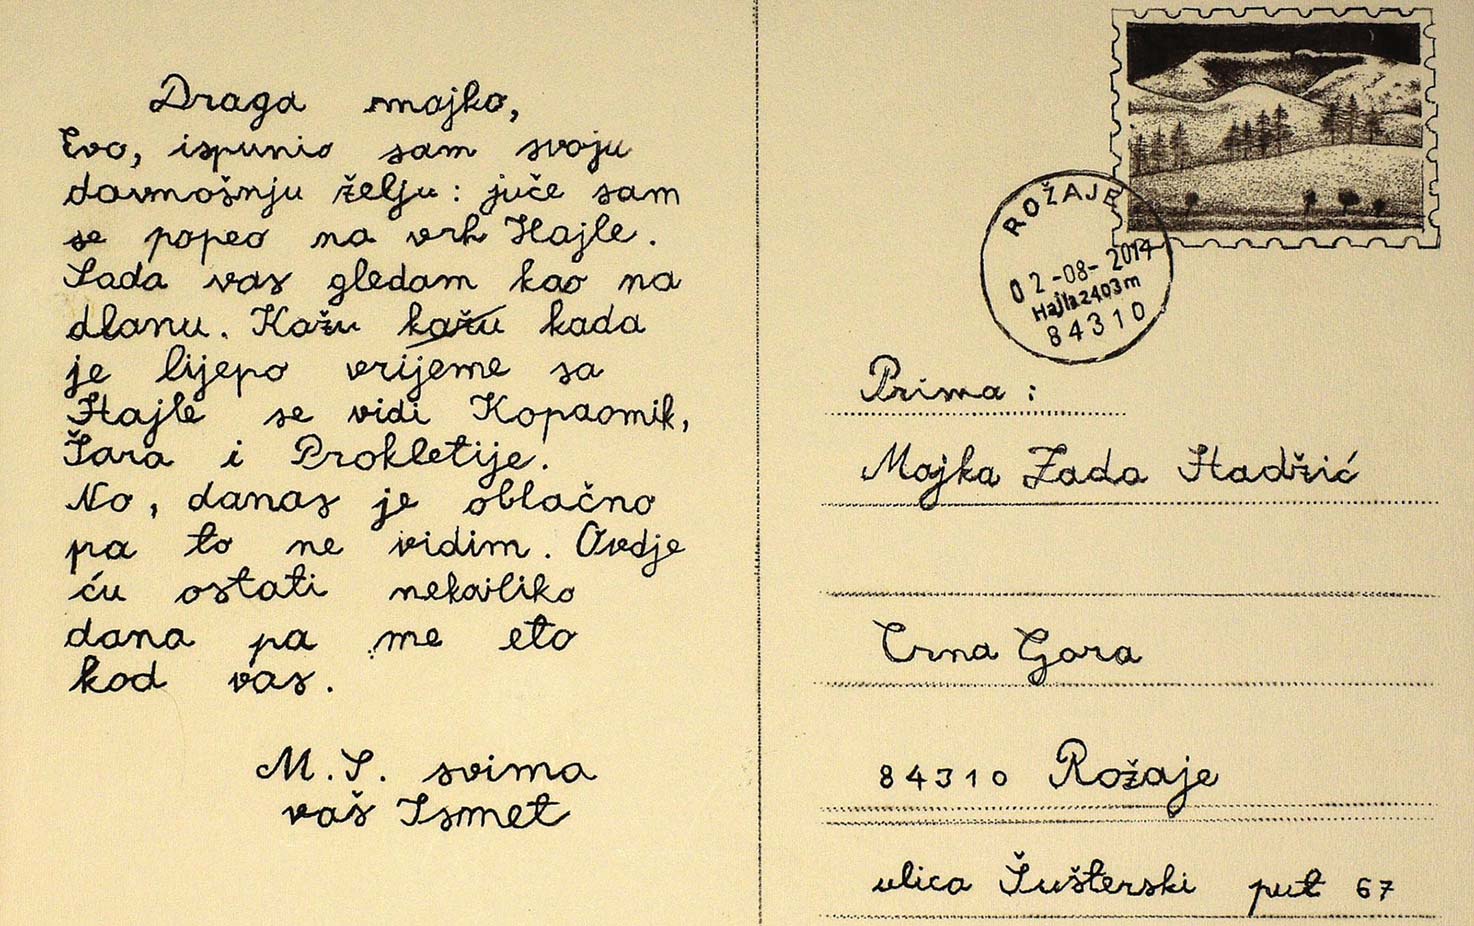 Draga majko,
Evo, ispunio sam svoju
davnošnju želju: juče sam
se popeo na vrh Hajle.
Sada vas gledam kao na
dlanu. Kažu kažu kada
je lijepo vrijeme sa
Hajle se vidi Kopaonik,
Šara i Prokletije.
No, danas je oblačno
pa to ne vidim. Ovdje
ću ostati nekoliko
dana pa me eto
kod vas.
M.S. svima
vaš Ismet
ROŽAJE
02-08-2014
Hajla 2403m
84310
Prima:
Majka Zada Hadžić
Crna Gora
84310 Rožaje
ulica Šušterski put 67